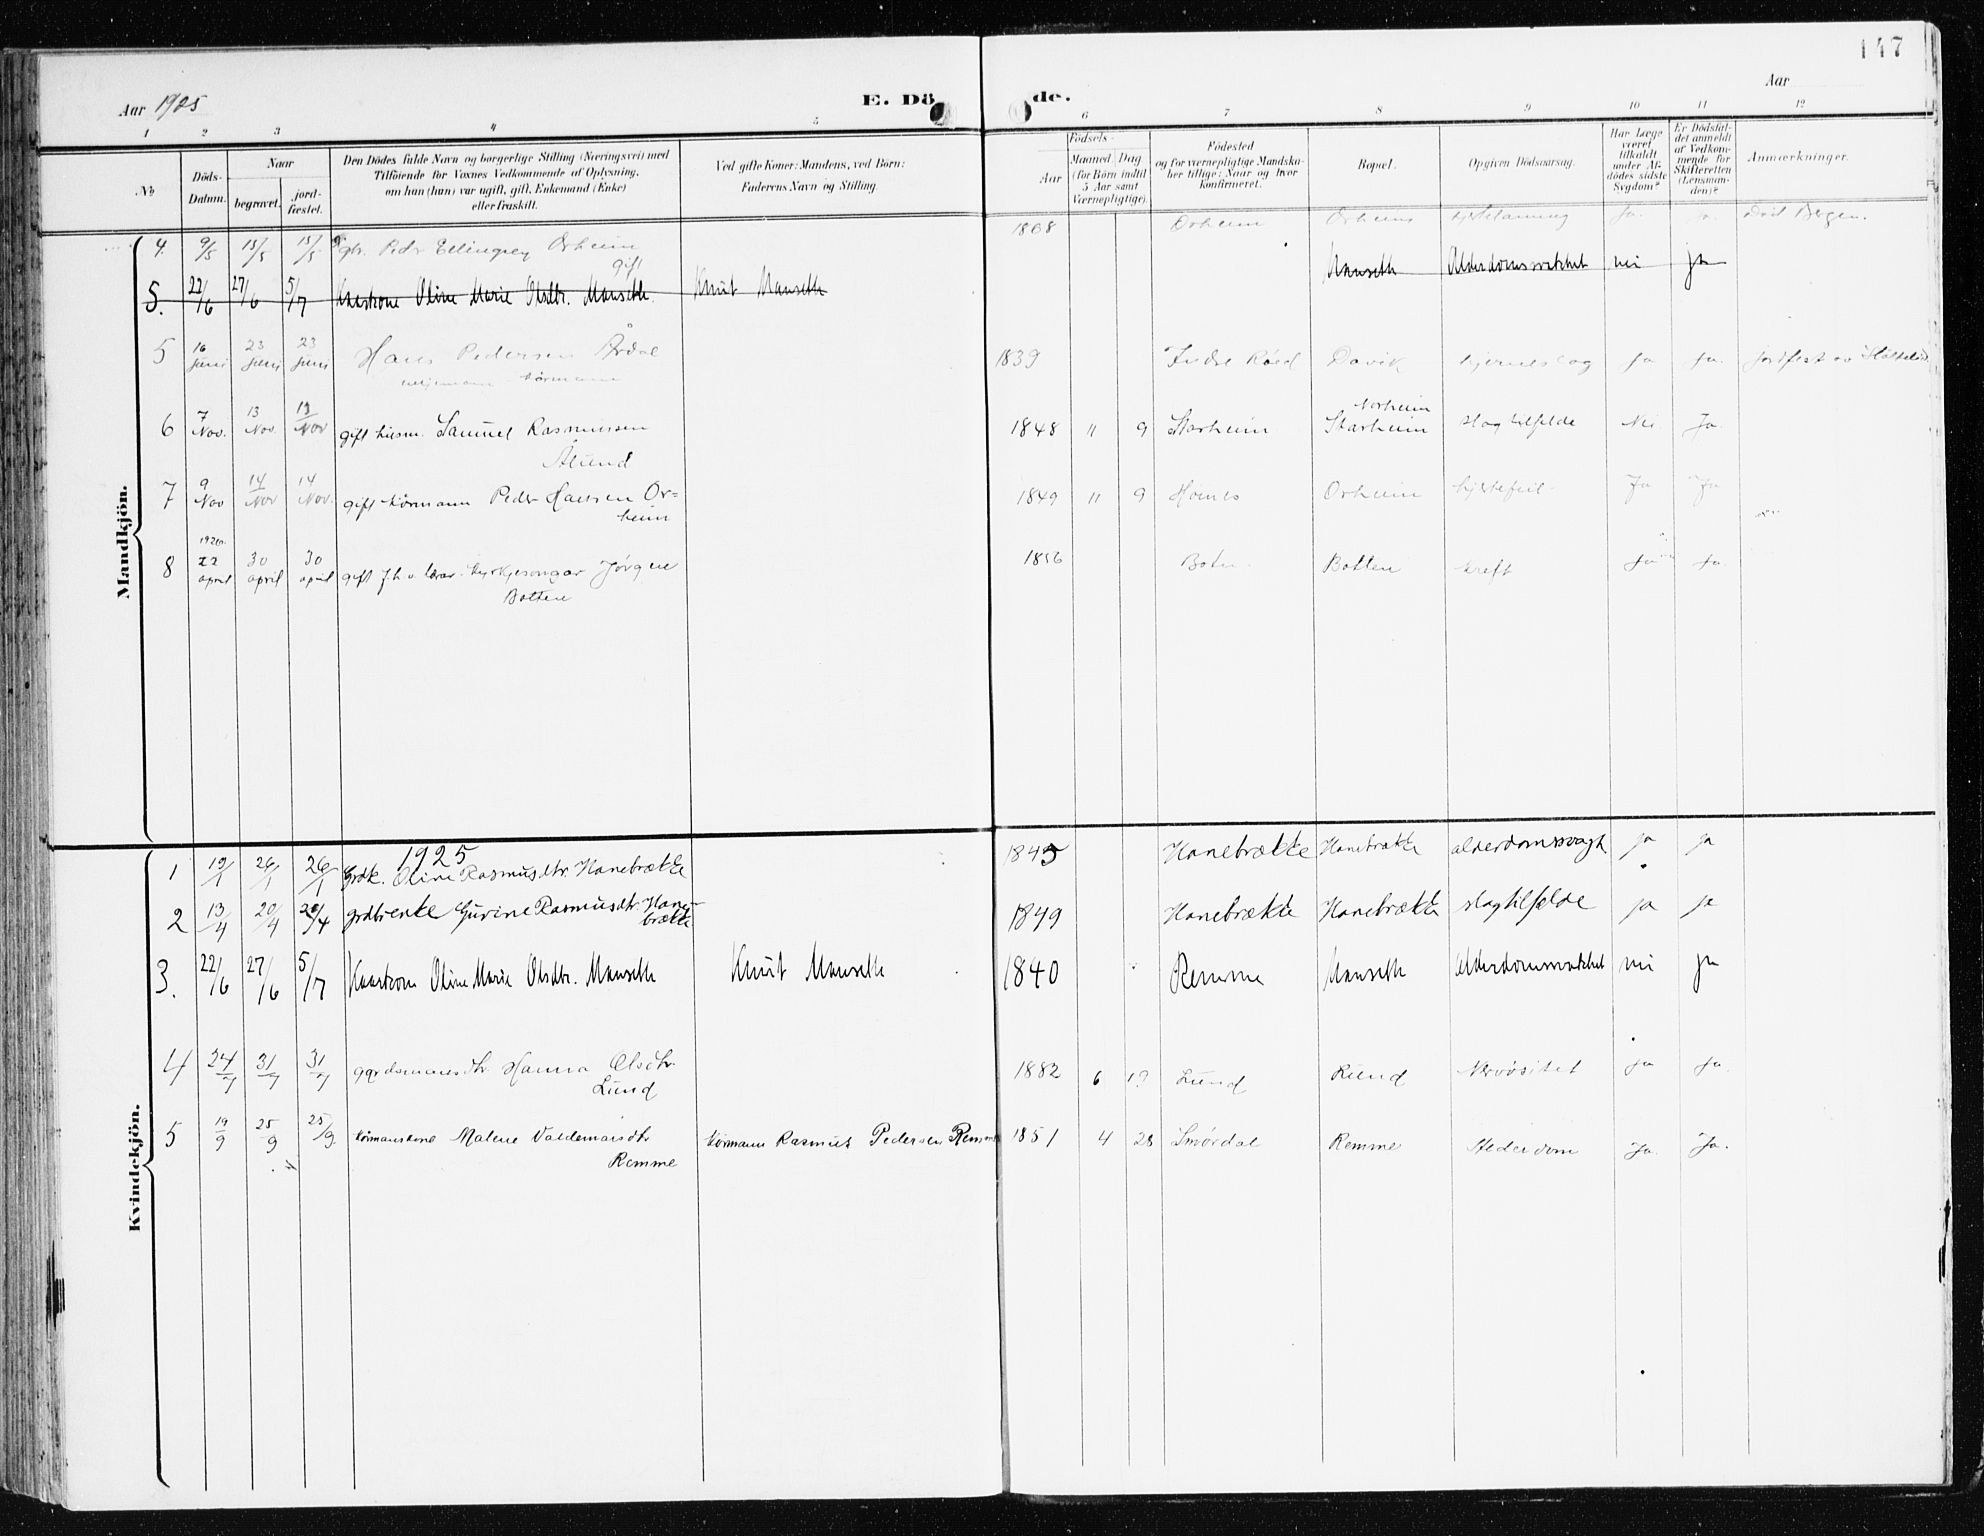 147
Aar 1925
E. Dö de.
Aar
1 2 3 4 5 6 7 8 9 10 11 12
No
Döds-Datum.
Naar
begravet.
jord-fæstet.
Den Dödes fulde Navn og borgerlige Stilling (Næringsvei) med
Tilföiende for Voxnes Vedkommende af Oplysning,
om han (hun) var ugift, gift, Enkemand (Enke)
eller fraskilt.
Ved gifte Koner: Mandens, ved Börn:
Faderens Navn og Stilling.
Aar
Födsels-
Maaned Dag
(for Börn indtil
5 Aar samt
Værnepligtige).
Födested
og for værnepligtige Mandska-
ber tillige: Naar og hvor
konfirmeret.
Bopæl.
Opgiven Dödsaarsag.
Har Læge
været
tilkaldt
under Af-
dödes sidste
Sygdom?
Er Dödsfal-
det anmeldt
af Vedkom-
mende for
Skifteretten
(Lensman-
den)?
Anmærkninger.
Mandkjön.
4. 9/5 15/5 15/5 Peder Ellingsen Orheim 1868 Orheim Orheim ja. Död Bergen.
gift
5. 22/6 27/6 5/7 Kaarkone Oline Marie Olsdtr. Manseth Knut Manseth Manseth Alderdomssvakhet nei ja
5 16 juni 23 juni 23 juni Hans Pedersen Årdal 1839 Indre Davik ja ja. jordfest av
kårmann
6 7 Nov. 13 Nov. 13 Nov gift husm. Samuel Rasmussen 1848 11 9 Starheim Starheim slagtilfelde Nei Ja.
Ålund Norheim
7 9 Nov 14 Nov 14 Nov. gift kårmann Peder Hansen Or= 1849 11 9 Hornes Orheim hjertefeil Ja Ja
heim
8 1926 22 april 30 april 30 april gift kyrkjesongar Jørgen 1856 Boten Botten kreft Ja Ja.
Botten
Kvindekjön.
1925
1 19/1 26/1 26/1 Grdk. Oline Rasmusdtr. Hanebrække 1845 Hanebrække Hanebrække alderdomssvagh. ja ja
2 13/4 20/4 20/4 grdbrenke Gurine Rasmusdtr. Hane- 1849 Hanebrække Hanebrække slagtilfælde ja ja
brække
3. 22/6 27/6 5/7 Kaarkone Oline Marie Olsdtr. Manseth Knut Manseth 1840 Remme Manseth Alderdomssvakhet nei ja
4 24/7 31/7 31/7 gardsmannsdtr. Hanna Olsdtr. 1882 6 19 Lund Lund Nervøsitet ja ja.
Lund
5 19/9 25/9 25/9 kårmannskone Malene Valdemarsdtr Kårmann Rasmus Pedersen Remme 1851 4 28 Smørdal Remme Alderdom Ja. Ja.
Remme